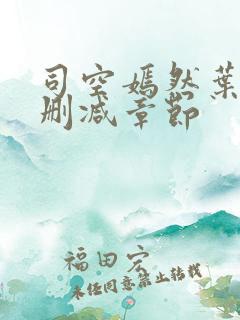 司空嫣然葉
刪減章節
福田宏
未经同意禁止转载